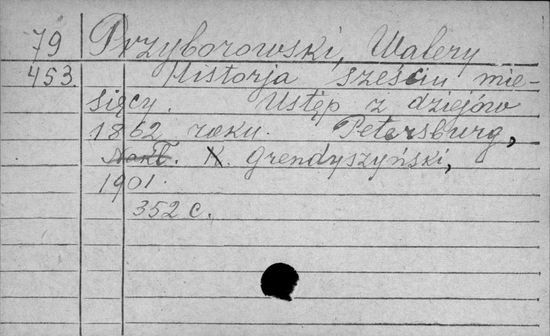 79 Przyborowski, Walery
453. Historja sześciu mie-
sięcy. Ustęp z dziejów
1862 roku. Petersburg,
Nakł. K. Grendyszyński,
1901.
352 c.